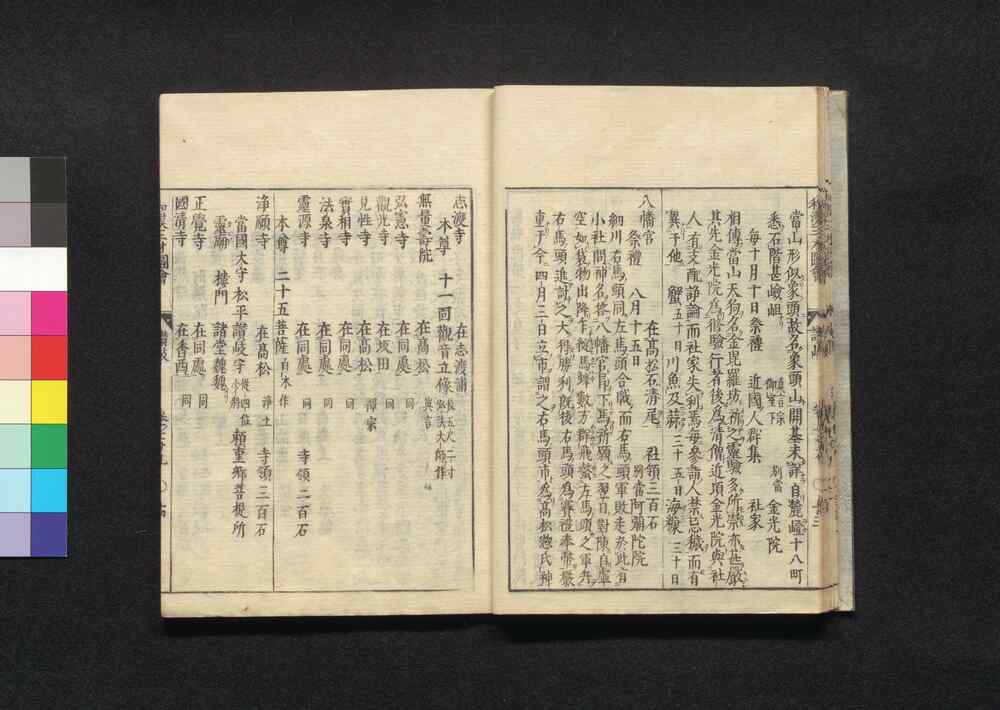 當山形似象頭故名象頭山開基未詳自麓登十八町
悉石階甚嶮岨 真言宗 御室下 別當 金光院
毎十月十日祭禮 近國人群集 社家
相傳當山天狗名金毘羅坊祈之靈驗多所祟亦甚嚴
其先金光院爲修驗行者後爲清僧近頃金光院與社
人有支配諍論而社家失利焉毎參詣人禁忌穢而有
異于他 蟹五十日川魚及蒜三十五日海糠三十日
八幡宮 在高松石清尾 社領三百石
祭禮 八月十五日 別當阿彌陀院
細川右馬頭同左馬頭合戰而右馬頭軍敗走於此有
小社問神名答八幡宮乃下馬祈願之翌日對陳自虛
右馬頭進討之大得勝利既後右馬頭爲賽禮奉幣嚴
重于今四月三日立市謂之右馬頭市爲高松惣氏神
志渡寺 在志渡浦
本尊 十一面觀音立像 長五尺二寸 弘法大師作
無量壽院 在高松 真言
弘憲寺 在同處 同
觀光寺 在坂田 同
見性寺 在高松 禪宗
實相寺 在同處 同
法泉寺 在同處 同
靈源寺 在同處 同 寺領二百石
本尊 二十五菩薩
淨願寺 在高松 淨土 寺領三百石
當國大守松平讃岐守 從四位 少將 頼重卿菩提所
靈廟 樓門 諸堂魏魏
正覺寺 在同處 同
國清寺 在香西 同